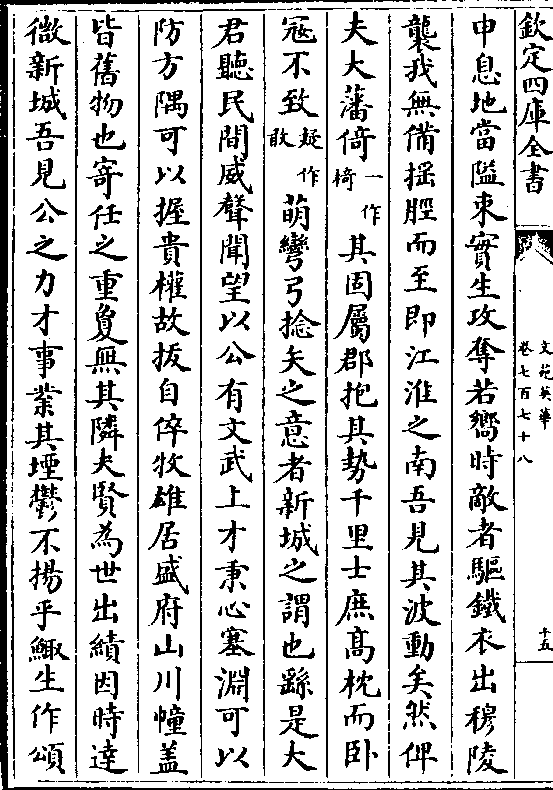 欽定四庫全書
文苑英華
卷七百七十八
十五
申息地當隘束實生攻奪若嚮時敵者驅鐵衣出穆陵
襲我無備搖脛而至即江淮之南吾見其波動矣然俾
夫大藩倚一作椅其固屬郡抱其勢千里士庶髙枕而卧
冦不致疑作敢萌彎弓捻矢之意者新城之謂也繇是大
君聽民間威聲聞望以公有文武上才秉心塞淵可以
防方隅可以握貴權故拔自倅牧雄居盛府山川幢盖
皆舊物也寄任之重夐無其隣夫賢為世出績因時達
微新城吾見公之力才事業其堙鬱不揚乎鯫生作頌